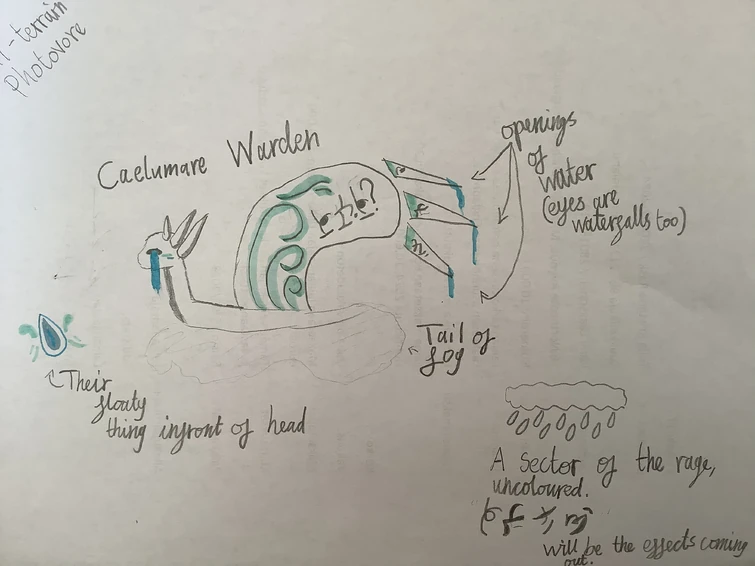 -terrain
Photovore
Caelumare Warden
openings
of
water
(eyes are
waterfalls too)
Tail of
fog
Their
floaty
thing infront of head
A sector of the rage,
uncoloured.
will be the effects coming
out.